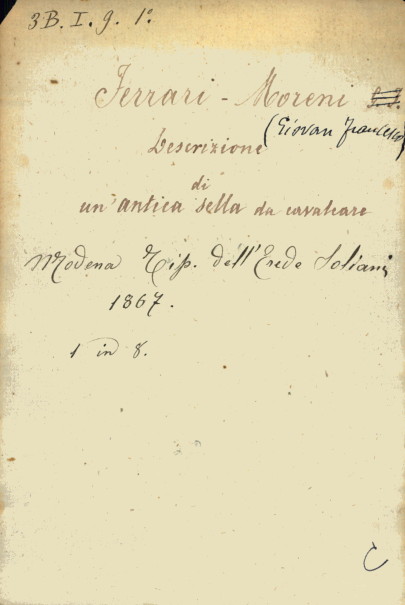 3B. I. g. 1º
Ferrari - Moreni
(Giovan Francesco)
Descrizione
di
un'antica sella da cavalcare
Modena Tip. dell'Erede Soliani
1867.
1 in 8.
C